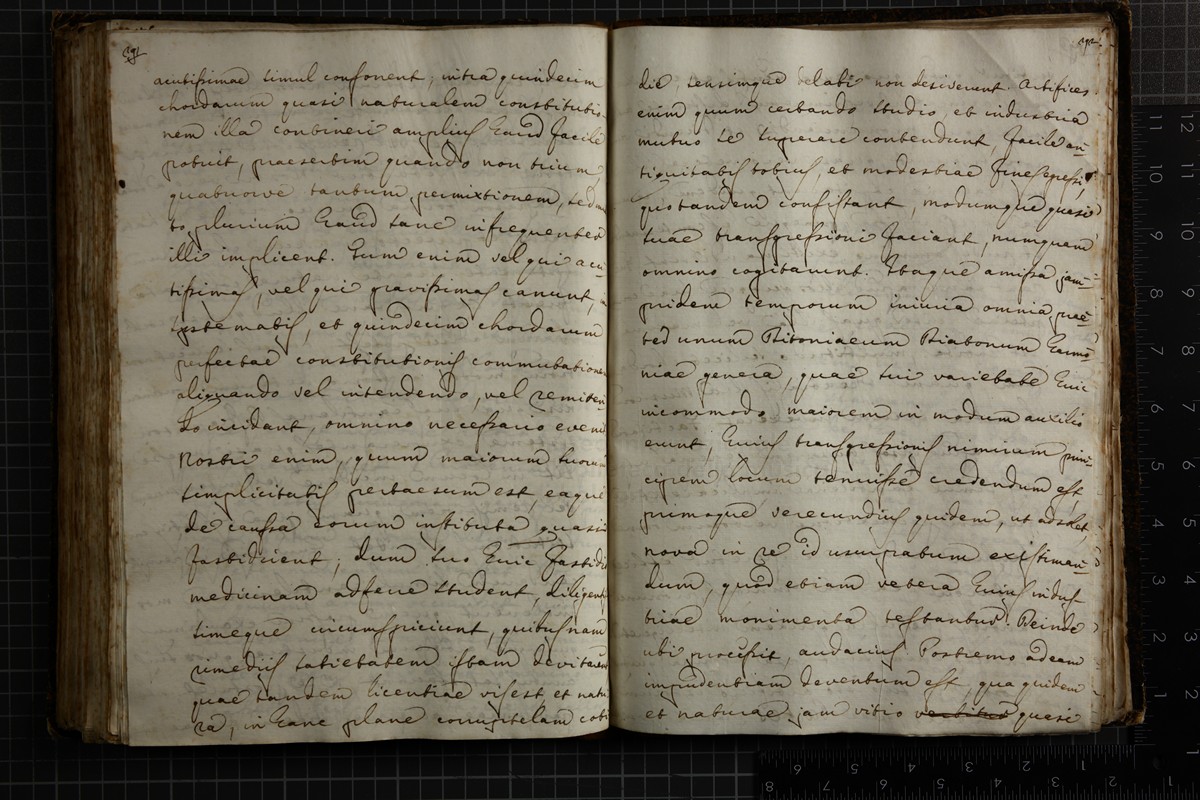 391
acutissimae simul consonent, intra quindecim
chordarum quasi naturalem constitutio-
nem illa contineri amplius haud facile
potuit, praesertim quando non trium
quatuorve tantum permixtionem, sed
to plurium haud sane infrequenter
illi implicent. Cum enim vel qui acu
tissimas, vel qui gravissimas canunt, a
systematis, et quindecim chordarum
perfectae constitutionis commutatione
aliquando vel intendendo, vel remitten
do incidant, omnino necessario evenit
Nostri enim, quum maiorum suorum
simplicitatis pertaesum est, eaque
de caussa eorum instituta quasi
fastidirent; dum suo huic fastidio
medicinam adferre student, diligentis
simeque circumspiciunt, quibusnam
remediis satietatem istam devitarent
quae tandem licentiae vis est et natu
ra, in hanc plane corruptelam coti
392
die, sensimque delabi non desiverunt. Artifices
enim quum certando studio, et industria
mutuo se superare contendunt, facile an-
tiquitatis totius, et modestiae fines egressi,
quo tandem consistant, modumque quasi
suae transgressioni faciant, numquam
omnino cogitarunt. Itaque amissa jam-
pridem temporum iniuria omnia prae-
ter unum Ditoniaeum Diatonum harmo
niae genera, quae sui varietate huic
incommodo maiorem in modum auxilio
erunt, huius transgressionis nimirum prin-
cipem locum tenuisse credendum est,
primoque verecundius quidem, ut adsolet
nova in re id usurpatum existiman-
dum, quod etiam vetera huius indus
triae monimenta testantur. Deinde
ubi processit, audacius Postremo ad eam
impudentiam deventum est, qua quidem
et naturae jam vitio quasi